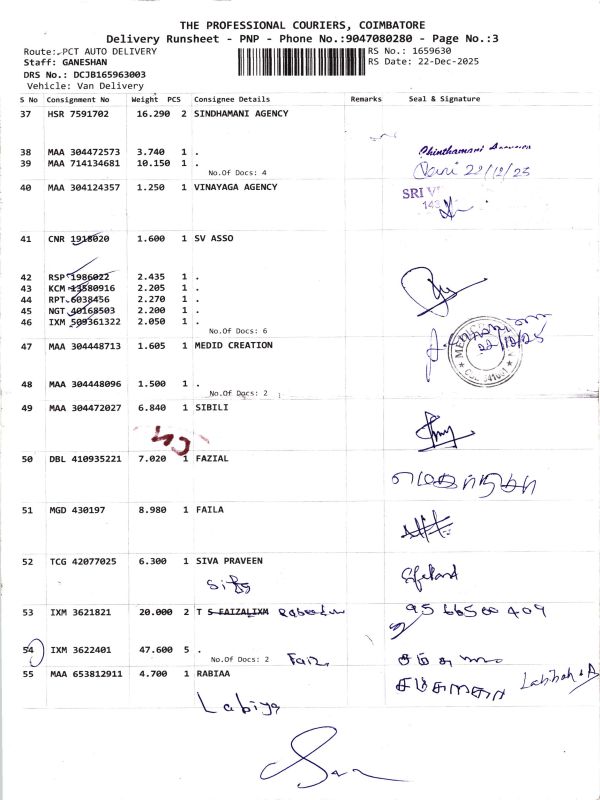 THE PROFESSIONAL COURIERS, COIMBATORE
Delivery Runsheet - PNP - Phone No.:9047080280 - Page No.:3
Route: PCT AUTO DELIVERY
RS No.: 1659630
Staff: GANESHAN
RS Date: 22-Dec-2025
DRS No.: DCJB165963003
Vehicle: Van Delivery
S No Consignment No Weight PCS Consignee Details Remarks Seal & Signature
37 HSR 7591702 16.290 2 SINDHAMANI AGENCY
38 MAA 304472573 3.740 1 .
39 MAA 714134681 10.150 1 .
No.Of Docs: 4
22/12/25
40 MAA 304124357 1.250 1 VINAYAGA AGENCY
SRI V
41 CNR 1918020 1.600 1 SV ASSO
42 RSP 1986022 2.435 1 .
43 KCM 13580916 2.205 1 .
44 RPT 6038456 2.270 1 .
45 NGT 40168503 2.200 1 .
46 IXM 509361322 2.050 1 .
No.Of Docs: 6
47 MAA 304448713 1.605 1 MEDID CREATION
22/12/25
48 MAA 304448096 1.500 1 .
No.Of Docs: 2
49 MAA 304472027 6.840 1 SIBILI
50 DBL 410935221 7.020 1 FAZIAL
51 MGD 430197 8.980 1 FAILA
52 TCG 42077025 6.300 1 SIVA PRAVEEN
53 IXM 3621821 20.000 2 T S FAIZALIXM
54 IXM 3622401 47.600 5 .
No.Of Docs: 2
55 MAA 653812911 4.700 1 RABIAA
Labiya